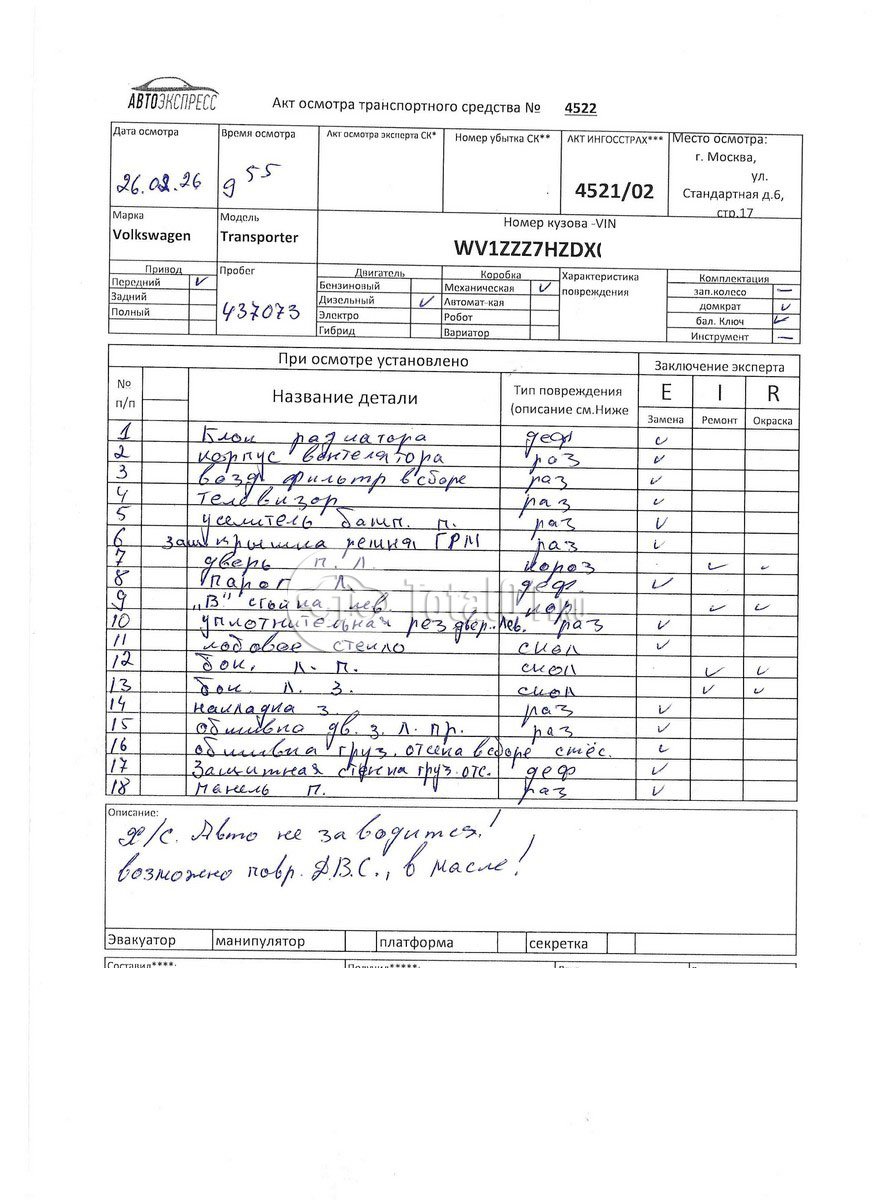 АВТОЭКСПРЕСС
Акт осмотра транспортного средства № 4522
Дата осмотра
Время осмотра
Акт осмотра эксперта СК*
Номер убытка СК**
АКТ ИНГОССТРАХ***
Место осмотра:
г. Москва,
ул.
Стандартная д.6,
стр.17
26.02.26
9 55
4521/02
Марка
Модель
Номер кузова -VIN
Volkswagen
Transporter
WV1ZZZ7HZDX
Привод
Пробег
Двигатель
Коробка
Характеристика
повреждения
Комплектация
Передний ✓
Бензиновый
Механическая ✓
зап.колесо –
Задний
Дизельный ✓
Автомат-кая
домкрат ✓
Полный
437073
Электро
Робот
бал. Ключ ✓
Гибрид
Вариатор
Инструмент –
При осмотре установлено
Заключение эксперта
№
п/п
Название детали
Тип повреждения
(описание см.Ниже
E I R
Замена Ремонт Окраска
1 Клок радиатора деф ✓
2 корпус вентелятора раз ✓
3 возд фильтр в сборе раз ✓
4 телевизор раз ✓
5 уселитель бамп. п. раз ✓
6 защ крышка ремня ГРМ раз ✓
7 дверь п. л. короз ✓ ✓
8 Парог л. деф ✓
9 "В" стойка лев. кор ✓ ✓
10 уплотнительная рез двер. Лев. раз ✓
11 лобовое стекло скол ✓
12 бок. л. п. скол ✓ ✓
13 бок л. з. скол ✓ ✓
14 накладка з. раз ✓
15 обшивка дв. з. л. пр. раз ✓
16 обшивка груз. отсека в сборе ✓
17 Защитная стенка груз. отс. деф ✓
18 панель п. раз ✓
TotalCar.ru
Описание:
х/с. Авто не заводится!
возможно повр. Д.В.С., в масле!
Эвакуатор
манипулятор
платформа
секретка
Составил****:
Получил*****: